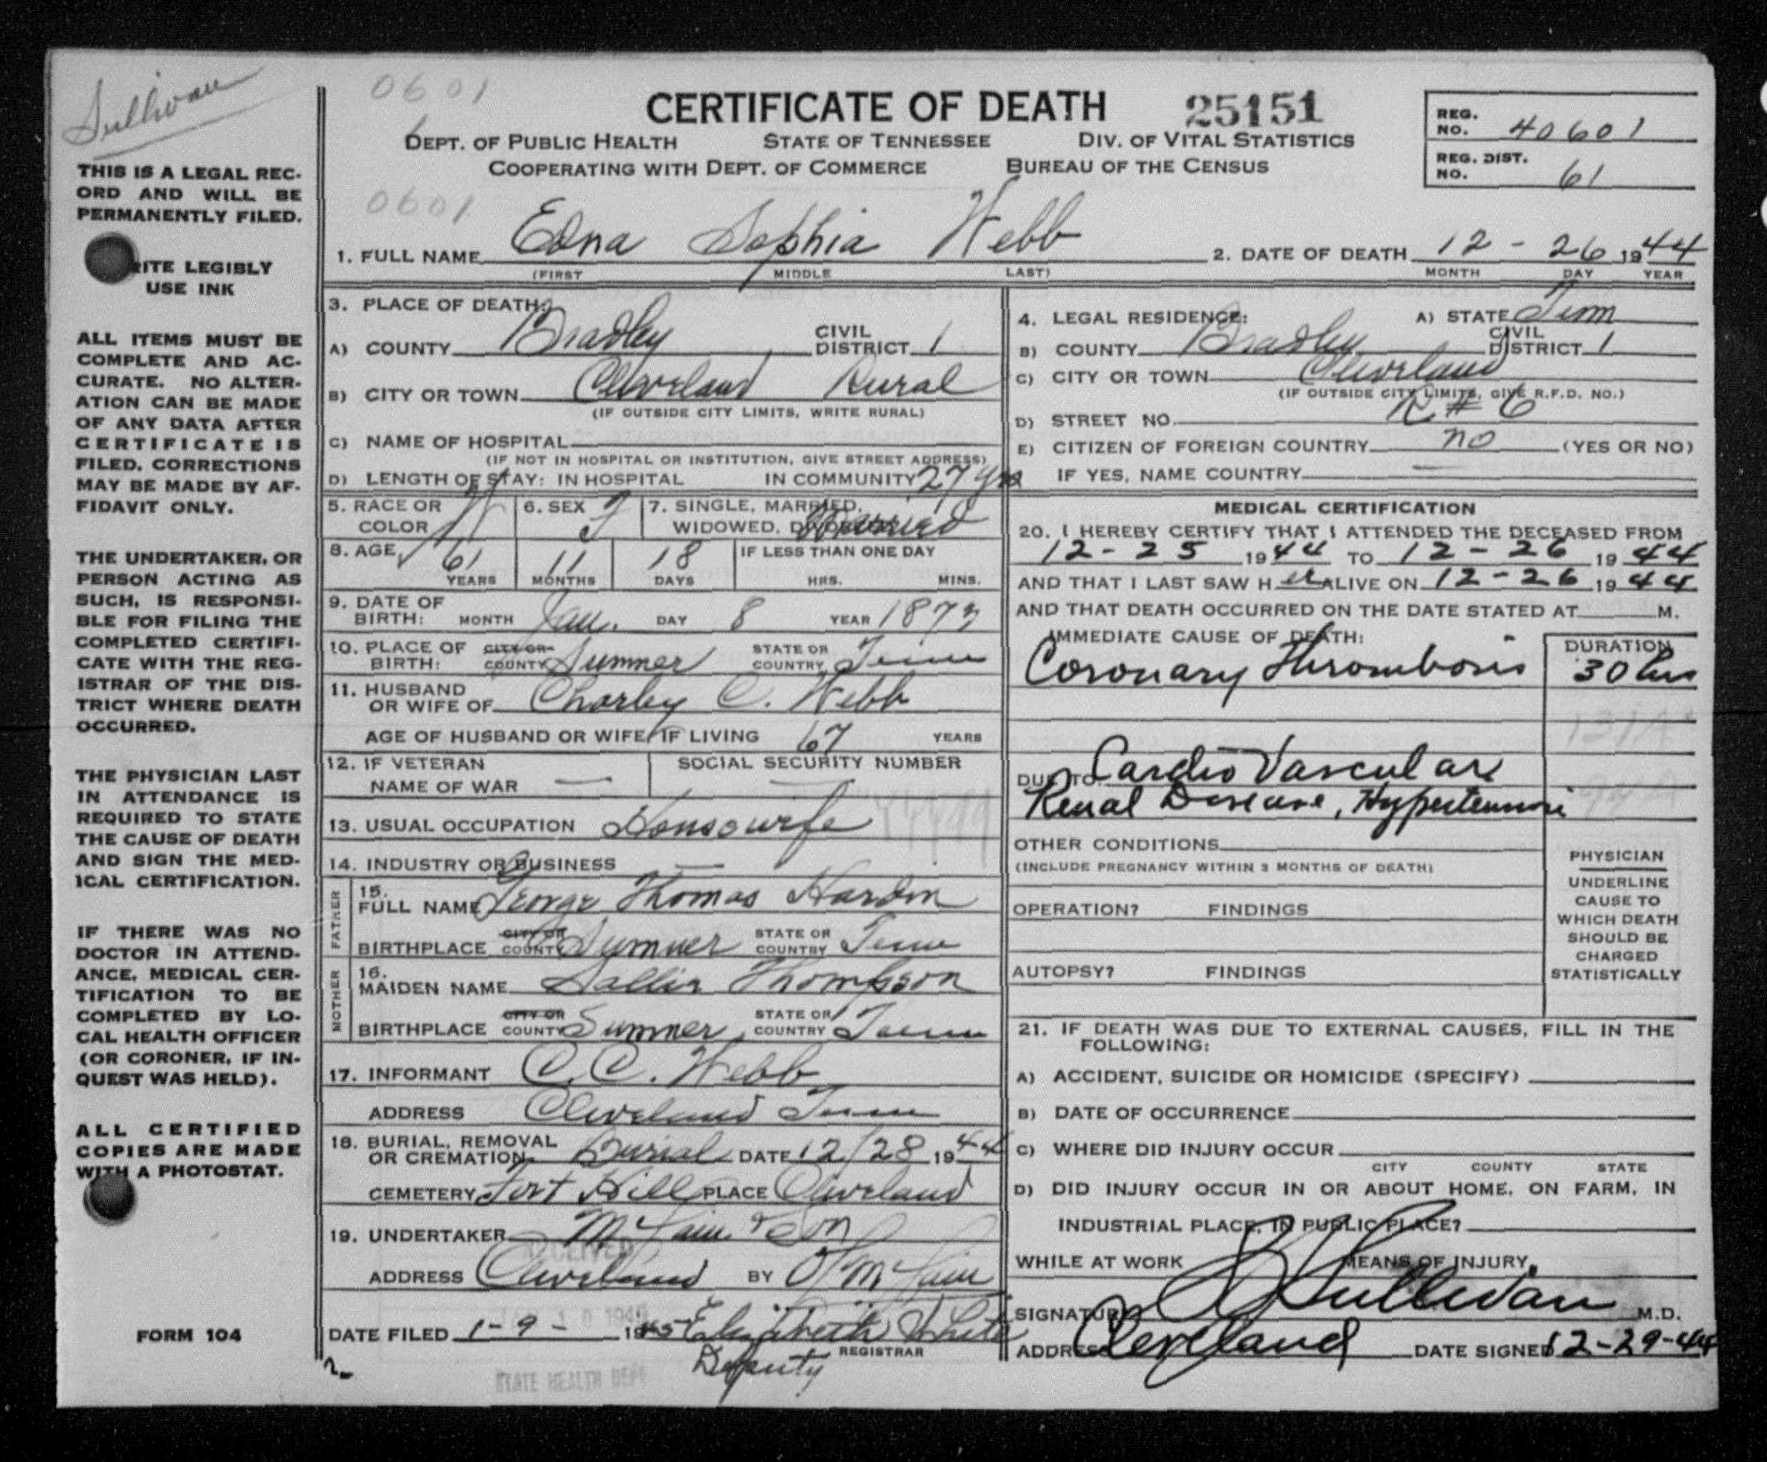 Sullivan
0601
CERTIFICATE OF DEATH 25151
DEPT. OF PUBLIC HEALTH STATE OF TENNESSEE DIV. OF VITAL STATISTICS
COOPERATING WITH DEPT. OF COMMERCE BUREAU OF THE CENSUS
REG. NO. 40601
REG. DIST. NO. 61
THIS IS A LEGAL REC-
ORD AND WILL BE
PERMANENTLY FILED.
ITE LEGIBLY
USE INK
ALL ITEMS MUST BE
COMPLETE AND AC-
CURATE. NO ALTER-
ATION CAN BE MADE
OF ANY DATA AFTER
CERTIFICATE IS
FILED. CORRECTIONS
MAY BE MADE BY AF-
FIDAVIT ONLY.
THE UNDERTAKER, OR
PERSON ACTING AS
SUCH, IS RESPONSI-
BLE FOR FILING THE
COMPLETED CERTIFI-
CATE WITH THE REG-
ISTRAR OF THE DIS-
TRICT WHERE DEATH
OCCURRED.
THE PHYSICIAN LAST
IN ATTENDANCE IS
REQUIRED TO STATE
THE CAUSE OF DEATH
AND SIGN THE MED-
ICAL CERTIFICATION.
IF THERE WAS NO
DOCTOR IN ATTEND-
ANCE, MEDICAL CER-
TIFICATION TO BE
COMPLETED BY LO-
CAL HEALTH OFFICER
(OR CORONER, IF IN-
QUEST WAS HELD).
ALL CERTIFIED
COPIES ARE MADE
WITH A PHOTOSTAT.
FORM 104
0601
1. FULL NAME Edna Sophia Webb 2. DATE OF DEATH 12 - 26 1944
(FIRST MIDDLE LAST) MONTH DAY YEAR
3. PLACE OF DEATH:
A) COUNTY Bradley CIVIL DISTRICT 1
B) CITY OR TOWN Cleveland Rural
(IF OUTSIDE CITY LIMITS, WRITE RURAL)
C) NAME OF HOSPITAL
(IF NOT IN HOSPITAL OR INSTITUTION, GIVE STREET ADDRESS)
D) LENGTH OF STAY: IN HOSPITAL IN COMMUNITY 27 yrs
4. LEGAL RESIDENCE: A) STATE Tenn
B) COUNTY Bradley CIVIL DISTRICT 1
C) CITY OR TOWN Cleveland
(IF OUTSIDE CITY LIMITS, GIVE R.F.D. NO.)
D) STREET NO. R # 6
E) CITIZEN OF FOREIGN COUNTRY no (YES OR NO)
IF YES, NAME COUNTRY —
5. RACE OR COLOR W 6. SEX F 7. SINGLE, MARRIED, WIDOWED, DIVORCED Married
8. AGE 61 11 18 IF LESS THAN ONE DAY
YEARS MONTHS DAYS HRS. MINS.
9. DATE OF BIRTH: MONTH Jan. DAY 8 YEAR
10. PLACE OF BIRTH: CITY OR COUNTY Sumner STATE OR COUNTRY Tenn
11. HUSBAND OR WIFE OF Charley C. Webb
AGE OF HUSBAND OR WIFE, IF LIVING 67 YEARS
12. IF VETERAN NAME OF WAR — SOCIAL SECURITY NUMBER —
13. USUAL OCCUPATION Housewife
14. INDUSTRY OR BUSINESS —
FATHER 15. FULL NAME George Thomas Hardin
BIRTHPLACE CITY OR COUNTY Sumner STATE OR COUNTRY Tenn
MOTHER 16. MAIDEN NAME Sallie Thompson
BIRTHPLACE CITY OR COUNTY Sumner STATE OR COUNTRY Tenn
17. INFORMANT C. C. Webb
ADDRESS Cleveland Tenn
18. BURIAL, REMOVAL OR CREMATION Burial DATE 12/28 1944
CEMETERY Fort Hill PLACE Cleveland
19. UNDERTAKER & Son
RECEIVED
ADDRESS Cleveland BY
DATE FILED 1-9- 1945 Elizabeth White
REGISTRAR
Deputy
STATE HEALTH DEPT
MEDICAL CERTIFICATION
20. I HEREBY CERTIFY THAT I ATTENDED THE DECEASED FROM
12-25 1944 TO 12-26 1944
AND THAT I LAST SAW HER ALIVE ON 12-26 1944
AND THAT DEATH OCCURRED ON THE DATE STATED AT M.
IMMEDIATE CAUSE OF DEATH: DURATION
Coronary Thrombosis 30 hrs
DUE TO Cardio Vascular
Renal Disease, Hypertension
OTHER CONDITIONS
(INCLUDE PREGNANCY WITHIN 3 MONTHS OF DEATH)
OPERATION? FINDINGS
AUTOPSY? FINDINGS
PHYSICIAN
UNDERLINE
CAUSE TO
WHICH DEATH
SHOULD BE
CHARGED
STATISTICALLY
21. IF DEATH WAS DUE TO EXTERNAL CAUSES, FILL IN THE
FOLLOWING:
A) ACCIDENT, SUICIDE OR HOMICIDE (SPECIFY)
B) DATE OF OCCURRENCE
C) WHERE DID INJURY OCCUR
CITY COUNTY STATE
D) DID INJURY OCCUR IN OR ABOUT HOME, ON FARM, IN
INDUSTRIAL PLACE, IN PUBLIC PLACE?
WHILE AT WORK MEANS OF INJURY
SIGNATURE Sullivan M.D.
ADDRESS Cleveland DATE SIGNED 12-29-44